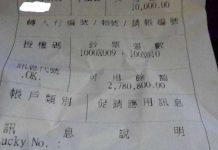 10,000.00
轉入行編號/帳號/請款編號
授權碼 鈔票張數
1000X009 + 100X010
訊息代號 可用餘額
.OK. 2,780,800.00
帳戶類別 促銷應用訊息
訊息說明
Lucky No.: